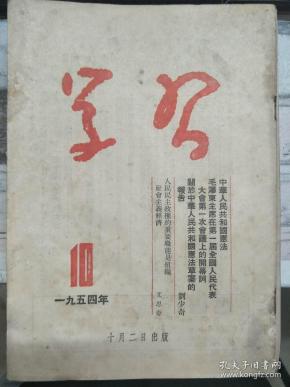 学习
中華人民共和國憲法
毛澤東主席在第一屆全國人民代表
大會第一次會議上的開幕詞
關於中華人民共和國憲法草案的
報告 劉少奇
人民民主政權的重要職能是組織
社會主義經濟 艾思奇
10
一九五四年
十月二日出版
孔夫子旧书网